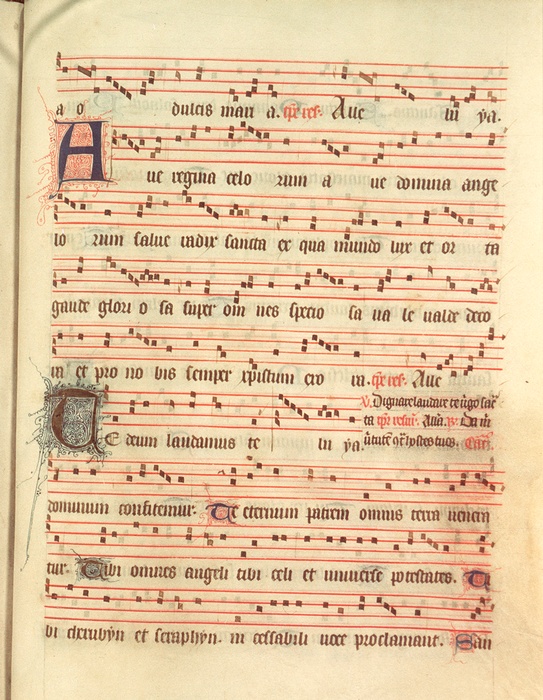 a o dulcis mari a. tpe res. Aue lu ya.
A ue regina celo rum a ue domina ange
lo rum salue radix sancta ex qua mundo lux et or ta
gaude glori o sa super om nes specio sa ua le ualde deco
ra et pro no bis semper xpistum exo ra. tpe res. Aue
V. Dignare laudare te ugo sac
ta tpe resur. Alla. R. Da m
T E deum laudamus te lu ya. utute hostes tuos.
dominum confitemur. Te eternum patrem omnis terra uenera
tur. Tibi omnes angeli tibi celi et uniuerse potestates. Ti
bi cherubyn et seraphyn. in cessabili uoce proclamant. San